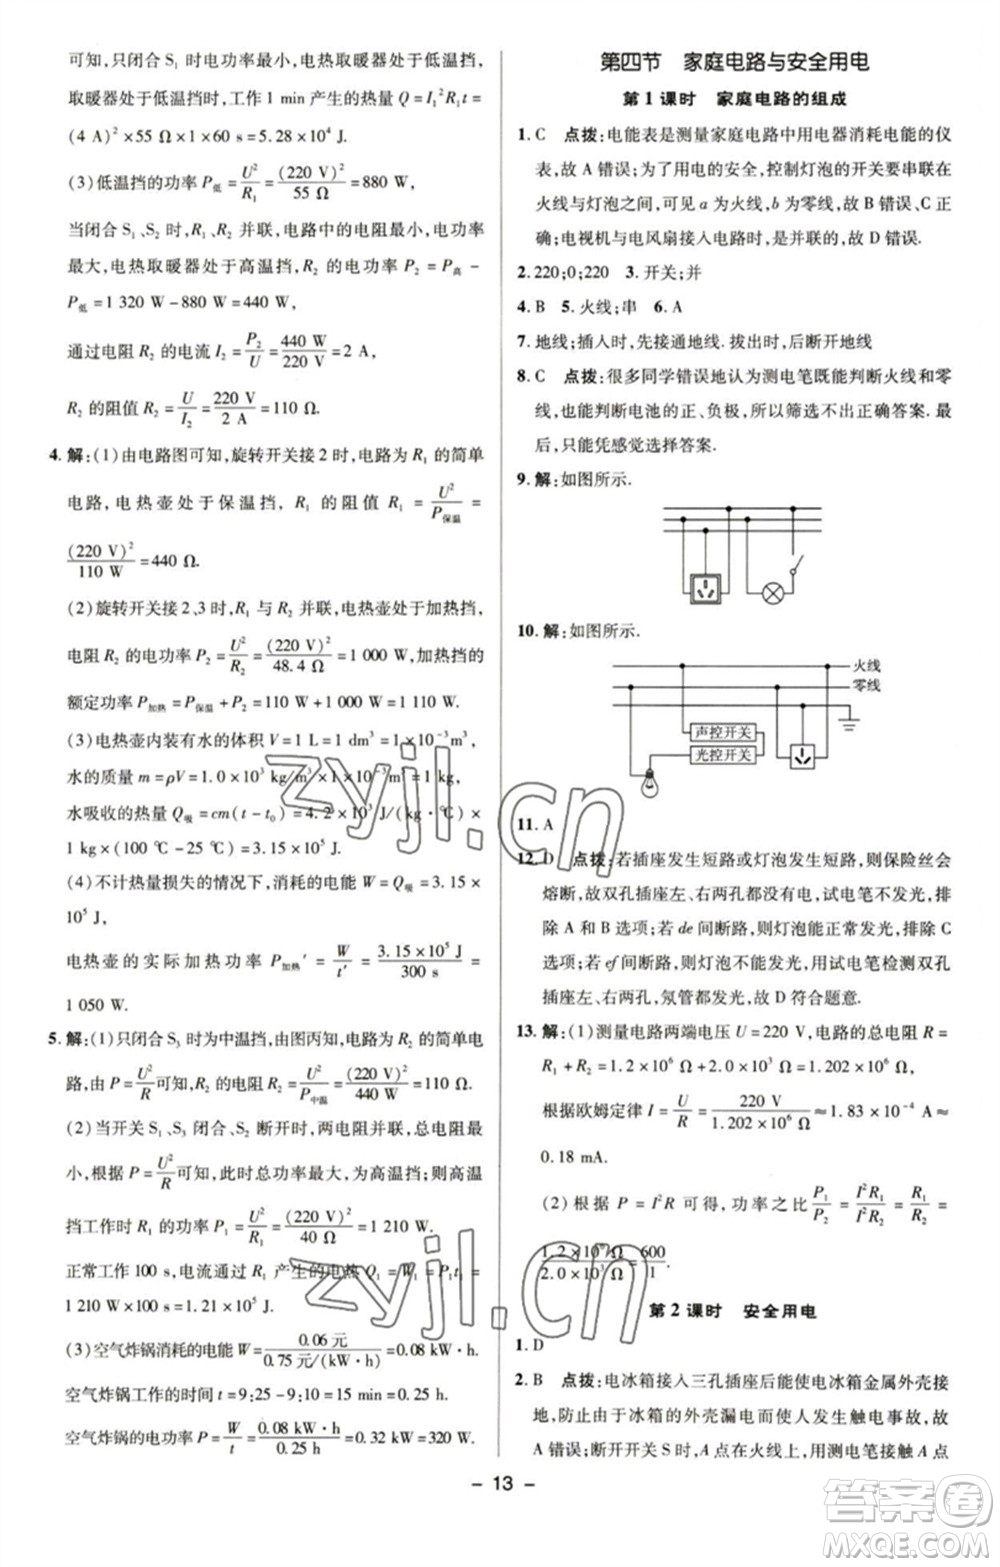 可知,只闭合 S₁ 时电功率最小,电热取暖器处于低温挡,
取暖器处于低温挡时,工作 1 min 产生的热量 Q=I₁²R₁t=
(4 A)²×55 Ω×1×60 s=5.28×10⁴ J.
(3)低温挡的功率 P低=U²/R₁=(220 V)²/55 Ω=880 W,
当闭合 S₁、S₂ 时,R₁、R₂ 并联,电路中的电阻最小,电功率
最大,电热取暖器处于高温挡,R₂ 的电功率 P₂=P高-
P低=1 320 W-880 W=440 W,
通过电阻 R₂ 的电流 I₂=P₂/U=440 W/220 V=2 A,
R₂ 的阻值 R₂=U/I₂=220 V/2 A=110 Ω.
4. 解:(1)由电路图可知,旋转开关接 2 时,电路为 R₁ 的简单
电路,电热壶处于保温挡, R₁ 的阻值 R₁=U²/P保温=
(220 V)²/110 W=440 Ω.
(2)旋转开关接 2、3 时,R₁ 与 R₂ 并联,电热壶处于加热挡,
电阻 R₂ 的电功率 P₂=U²/R₂=(220 V)²/48.4 Ω=1 000 W,加热挡的
额定功率 P加热=P保温+P₂=110 W+1 000 W=1 110 W.
(3)电热壶内装有水的体积 V=1 L=1 dm³=1×10⁻³ m³,
水的质量 m=ρV=1.0×10³ kg/m³×1×10⁻³ m³=1 kg,
水吸收的热量 Q吸=cm(t-t₀)=4.2×10³ J/(kg·℃)×
1 kg×(100 ℃-25 ℃)=3.15×10⁵ J.
(4)不计热量损失的情况下,消耗的电能 W=Q吸=3.15×
10⁵ J,
电热壶的实际加热功率 P加热′=W/t′=3.15×10⁵ J/300 s=
1 050 W.
5. 解:(1)只闭合 S₃ 时为中温挡,由图丙知,电路为 R₂ 的简单电
路,由 P=U²/R可知,R₂ 的电阻 R₂=U²/P中温=(220 V)²/440 W=110 Ω.
(2)当开关 S₁、S₃ 闭合、S₂ 断开时,两电阻并联,总电阻最
小,根据 P=U²/R可知,此时总功率最大,为高温挡;则高温
挡工作时 R₁ 的功率 P₁=U²/R₁=(220 V)²/40 Ω=1 210 W,
正常工作 100 s,电流通过 R₁ 产生的电热 Q₁=W₁=P₁t₁=
1 210 W×100 s=1.21×10⁵ J.
(3)空气炸锅消耗的电能 W=0.06 元/0.75 元/(kW·h)=0.08 kW·h,
空气炸锅工作的时间 t=9:25-9:10=15 min=0.25 h,
空气炸锅的电功率 P=W/t=0.08 kW·h/0.25 h=0.32 kW=320 W.
第四节 家庭电路与安全用电
第 1 课时 家庭电路的组成
1. C 点拨:电能表是测量家庭电路中用电器消耗电能的仪
表,故 A 错误;为了用电的安全,控制灯泡的开关要串联在
火线与灯泡之间,可见 a 为火线,b 为零线,故 B 错误、C 正
确;电视机与电风扇接入电路时,是并联的,故 D 错误.
2. 220;0;220 3. 开关;并
4. B 5. 火线;串 6. A
7. 地线;插入时,先接通地线. 拔出时,后断开地线
8. C 点拨:很多同学错误地认为测电笔既能判断火线和零
线,也能判断电池的正、负极,所以筛选不出正确答案. 最
后,只能凭感觉选择答案.
9. 解:如图所示.
10. 解:如图所示.
火线
零线
声控开关
光控开关
11. A
12. D 点拨:若插座发生短路或灯泡发生短路,则保险丝会
熔断,故双孔插座左、右两孔都没有电,试电笔不发光,排
除 A 和 B 选项;若 de 间断路,则灯泡能正常发光,排除 C
选项;若 ef 间断路,则灯泡不能发光,用试电笔检测双孔
插座左、右两孔,氖管都发光,故 D 符合题意.
13. 解:(1)测量电路两端电压 U=220 V,电路的总电阻 R=
R₁+R₂=1.2×10⁶ Ω+2.0×10³ Ω=1.202×10⁶ Ω,
根据欧姆定律 I=U/R=220 V/1.202×10⁶ Ω≈1.83×10⁻⁴ A≈
0.18 mA.
(2)根据 P=I²R 可得,功率之比P₁/P₂=I²R₁/I²R₂=R₁/R₂=
1.2×10⁶ Ω/2.0×10³ Ω=600/1.
第 2 课时 安全用电
1. D
2. B 点拨:电冰箱接入三孔插座后能使电冰箱金属外壳接
地,防止由于冰箱的外壳漏电而使人发生触电事故,故
A 错误;断开开关 S 时,A 点在火线上,用测电笔接触 A 点
- 13 -
zyjl.cn
zyjl.cn
答案圈
MXQE.COM